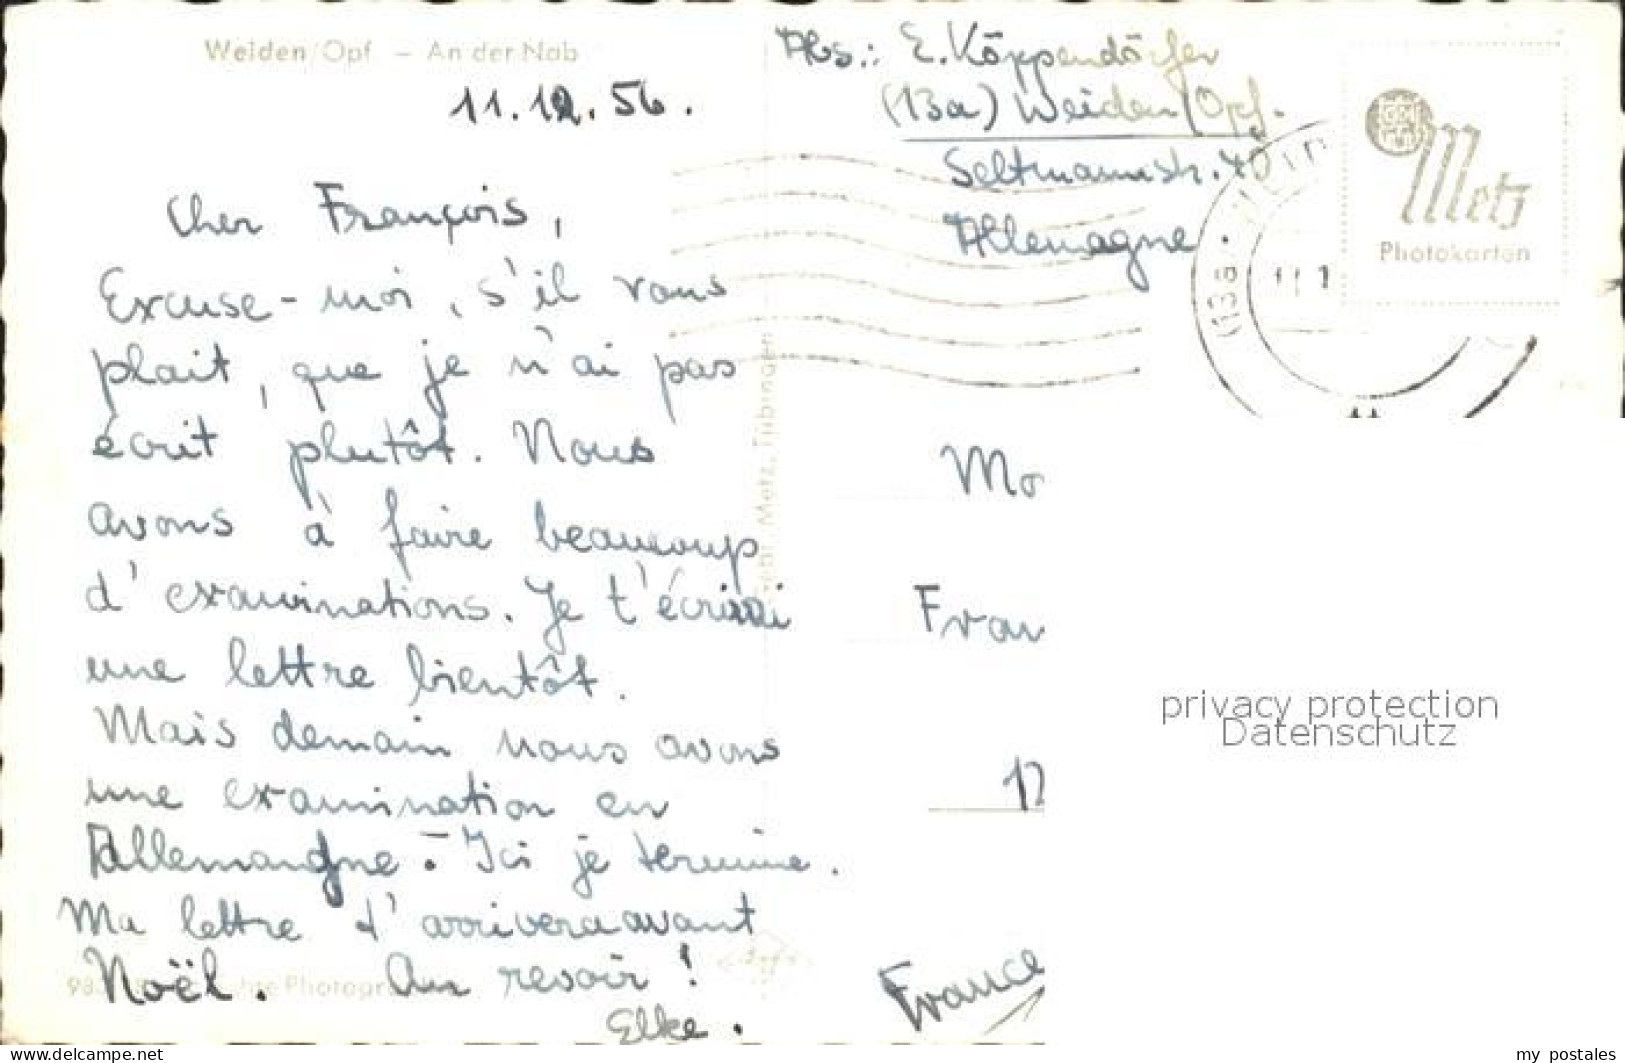 Weiden/Opf. – An der Nab
11.12.56.
Cher François,
Excuse-moi, s'il vous
plait, que je n'ai pas
écrit plutôt. Nous
avons à faire beaucoup
d'examinations. Je t'écrirai
une lettre bientôt.
Mais demain nous avons
une examination en
Allemangne. Ici je termine.
Ma lettre t'arrivera avant
Noël. Au revoir!
Elke.
Abs.: E. Köppendörfer
(13a) Weiden/Opf.
Seltmannstr. 40
Allemagne.
(13a)
Metz
Photokarten
Metz, Tübingen
Mo
Fran
17
France
privacy protection
Datenschutz
delcampe.net
my_postales